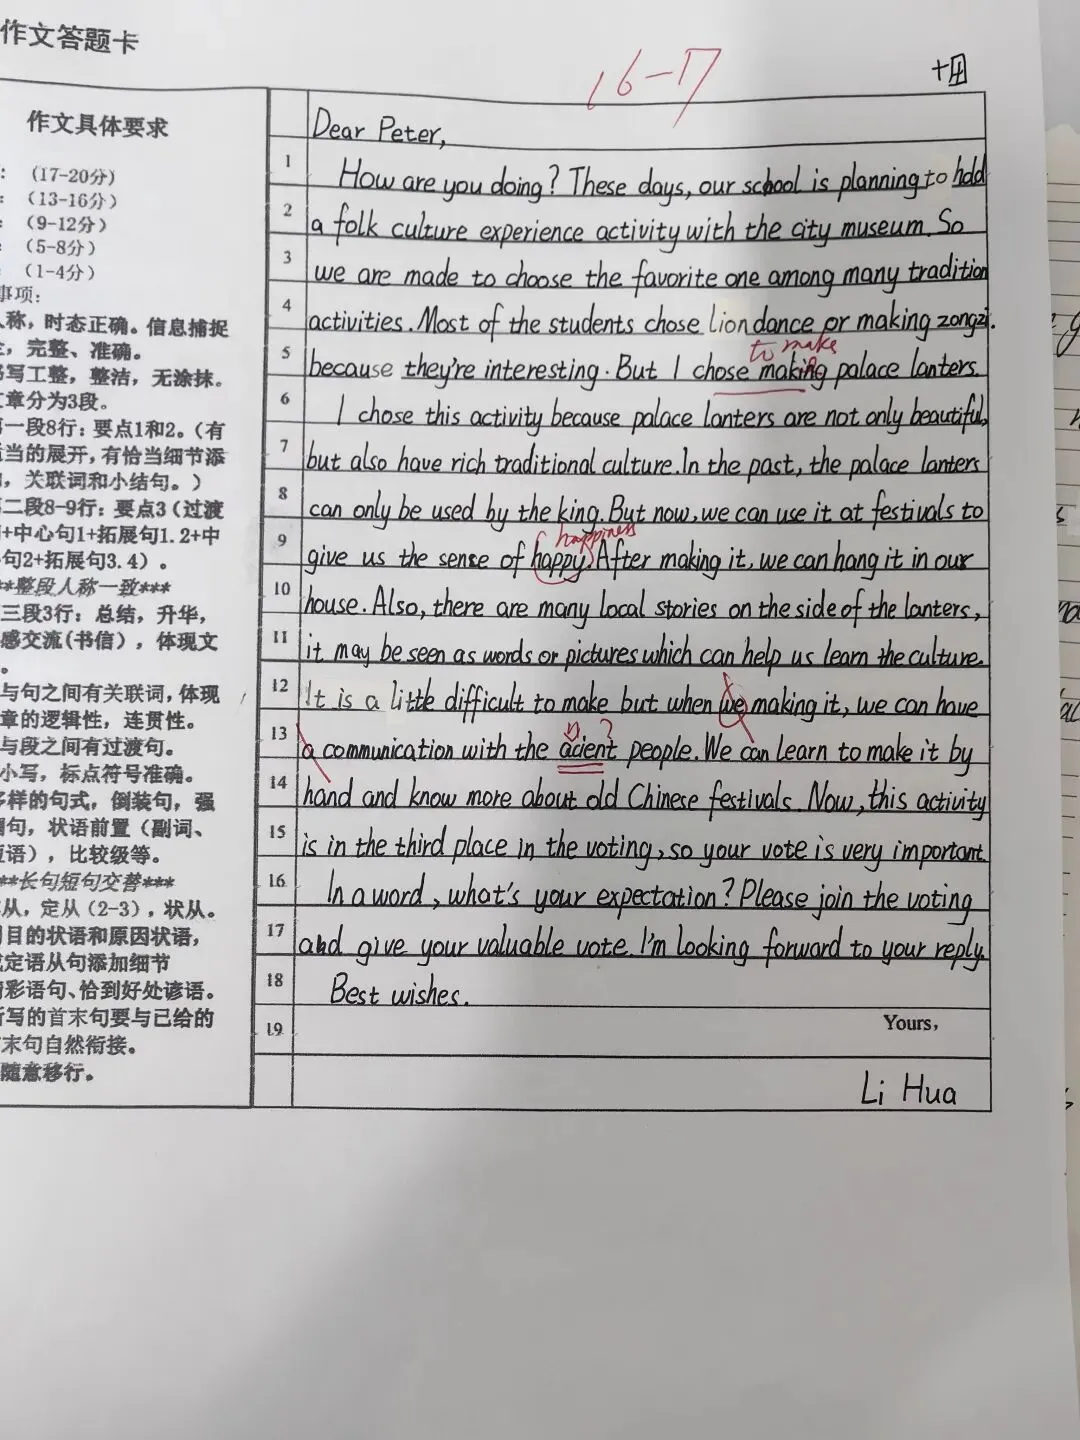 作文答题卡
16-17
作文具体要求
: (17-20分)
: (13-16分)
: (9-12分)
: (5-8分)
: (1-4分)
事项:
人称，时态正确。信息捕捉
，完整、准确。
写工整，整洁，无涂抹。
章分为3段。
一段8行：要点1和2。（有
当的展开，有恰当细节添
，关联词和小结句。）
二段8-9行：要点3（过渡
+中心句1+拓展句1.2+中
句2+拓展句3.4）。
**整段人称一致***
三段3行：总结，升华，
感交流(书信)，体现文
。
与句之间有关联词，体现
章的逻辑性，连贯性。
与段之间有过渡句。
小写，标点符号准确。
多样的句式，倒装句，强
调句，状语前置（副词、
语），比较级等。
**长句短句交替***
从，定从（2-3），状从。
用目的状语和原因状语，
定语从句添加细节
彩语句、恰到好处谚语。
所写的首末句要与已给的
末句自然衔接。
随意移行。
Dear Peter,
1 How are you doing? These days, our school is planning to hold
2 a folk culture experience activity with the city museum. So
3 we are made to choose the favorite one among many tradition
4 activities. Most of the students chose lion dance or making zongzi.
to make
5 because they're interesting. But I chose making palace lanters.
6 I chose this activity because palace lanters are not only beautiful,
7 but also have rich traditional culture. In the past, the palace lanters
8 can only be used by the king. But now, we can use it at festivals to
happiness
9 give us the sense of happy. After making it, we can hang it in our
10 house. Also, there are many local stories on the side of the lanters,
11 it may be seen as words or pictures which can help us learn the culture.
12 It is a little difficult to make but when we making it, we can have
13 a communication with the acient people. We can learn to make it by
14 hand and know more about old Chinese festivals. Now, this activity
15 is in the third place in the voting, so your vote is very important.
16 In a word, what's your expectation? Please join the voting
17 and give your valuable vote. I'm looking forward to your reply.
18 Best wishes.
19 Yours,
Li Hua